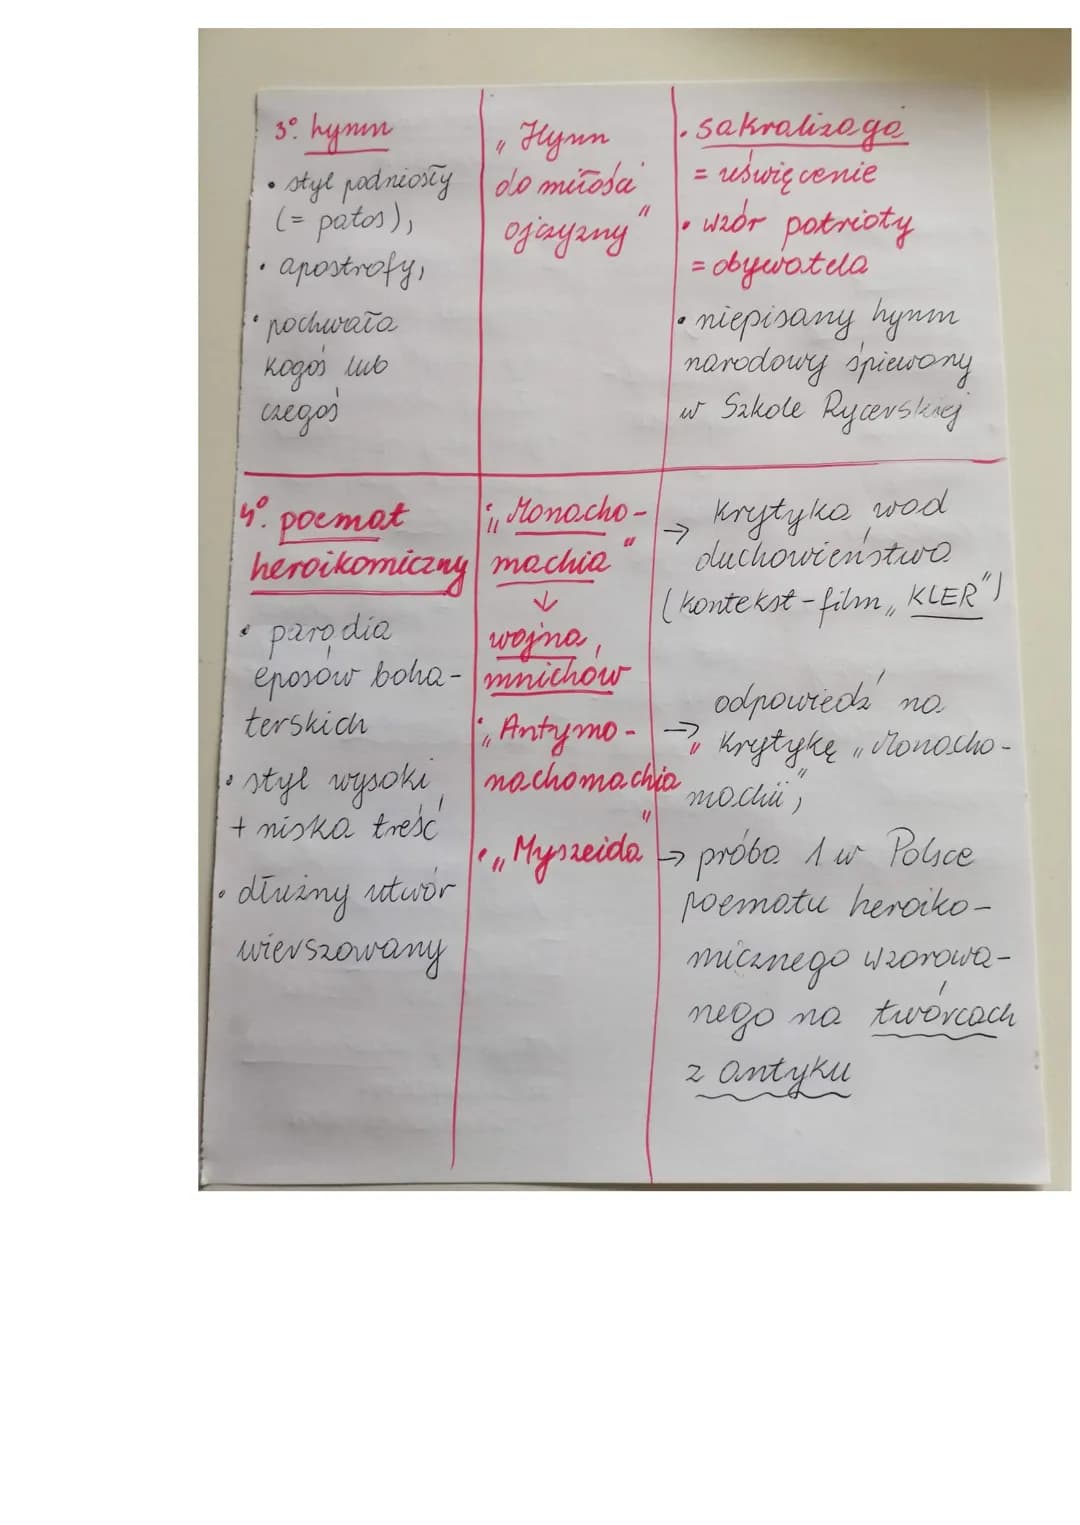 3° hymn
• styl podniosły
(= patos),
• apostrofy,
• pochwała
kogoś lub
czegoś
„Hymn
do miłości
ojczyzny"
• sakralizaga
= uświęcenie
• wzór patrioty
= obywatela
• niepisany hymn
narodowy śpiewany
w Szkole Rycerskiej
4°. poemat
heroikomiczny
• parodia
eposów boha-
terskich
• styl wysoki
+ niska treść
• dłużny utwór
wierszowany
• „Monacho-
machia"
↓
wojna
mnichów
• „Antymo-
nachomachia
"
• „Myszeida
"
→ krytyka wad
duchowieństwa
(kontekst - film „KLER")
→ odpowiedź na
krytykę „Monacho-
machii",
→ próba 1 w Polsce
poematu heroiko-
micznego wzorowa-
nego na twórcach
z antyku